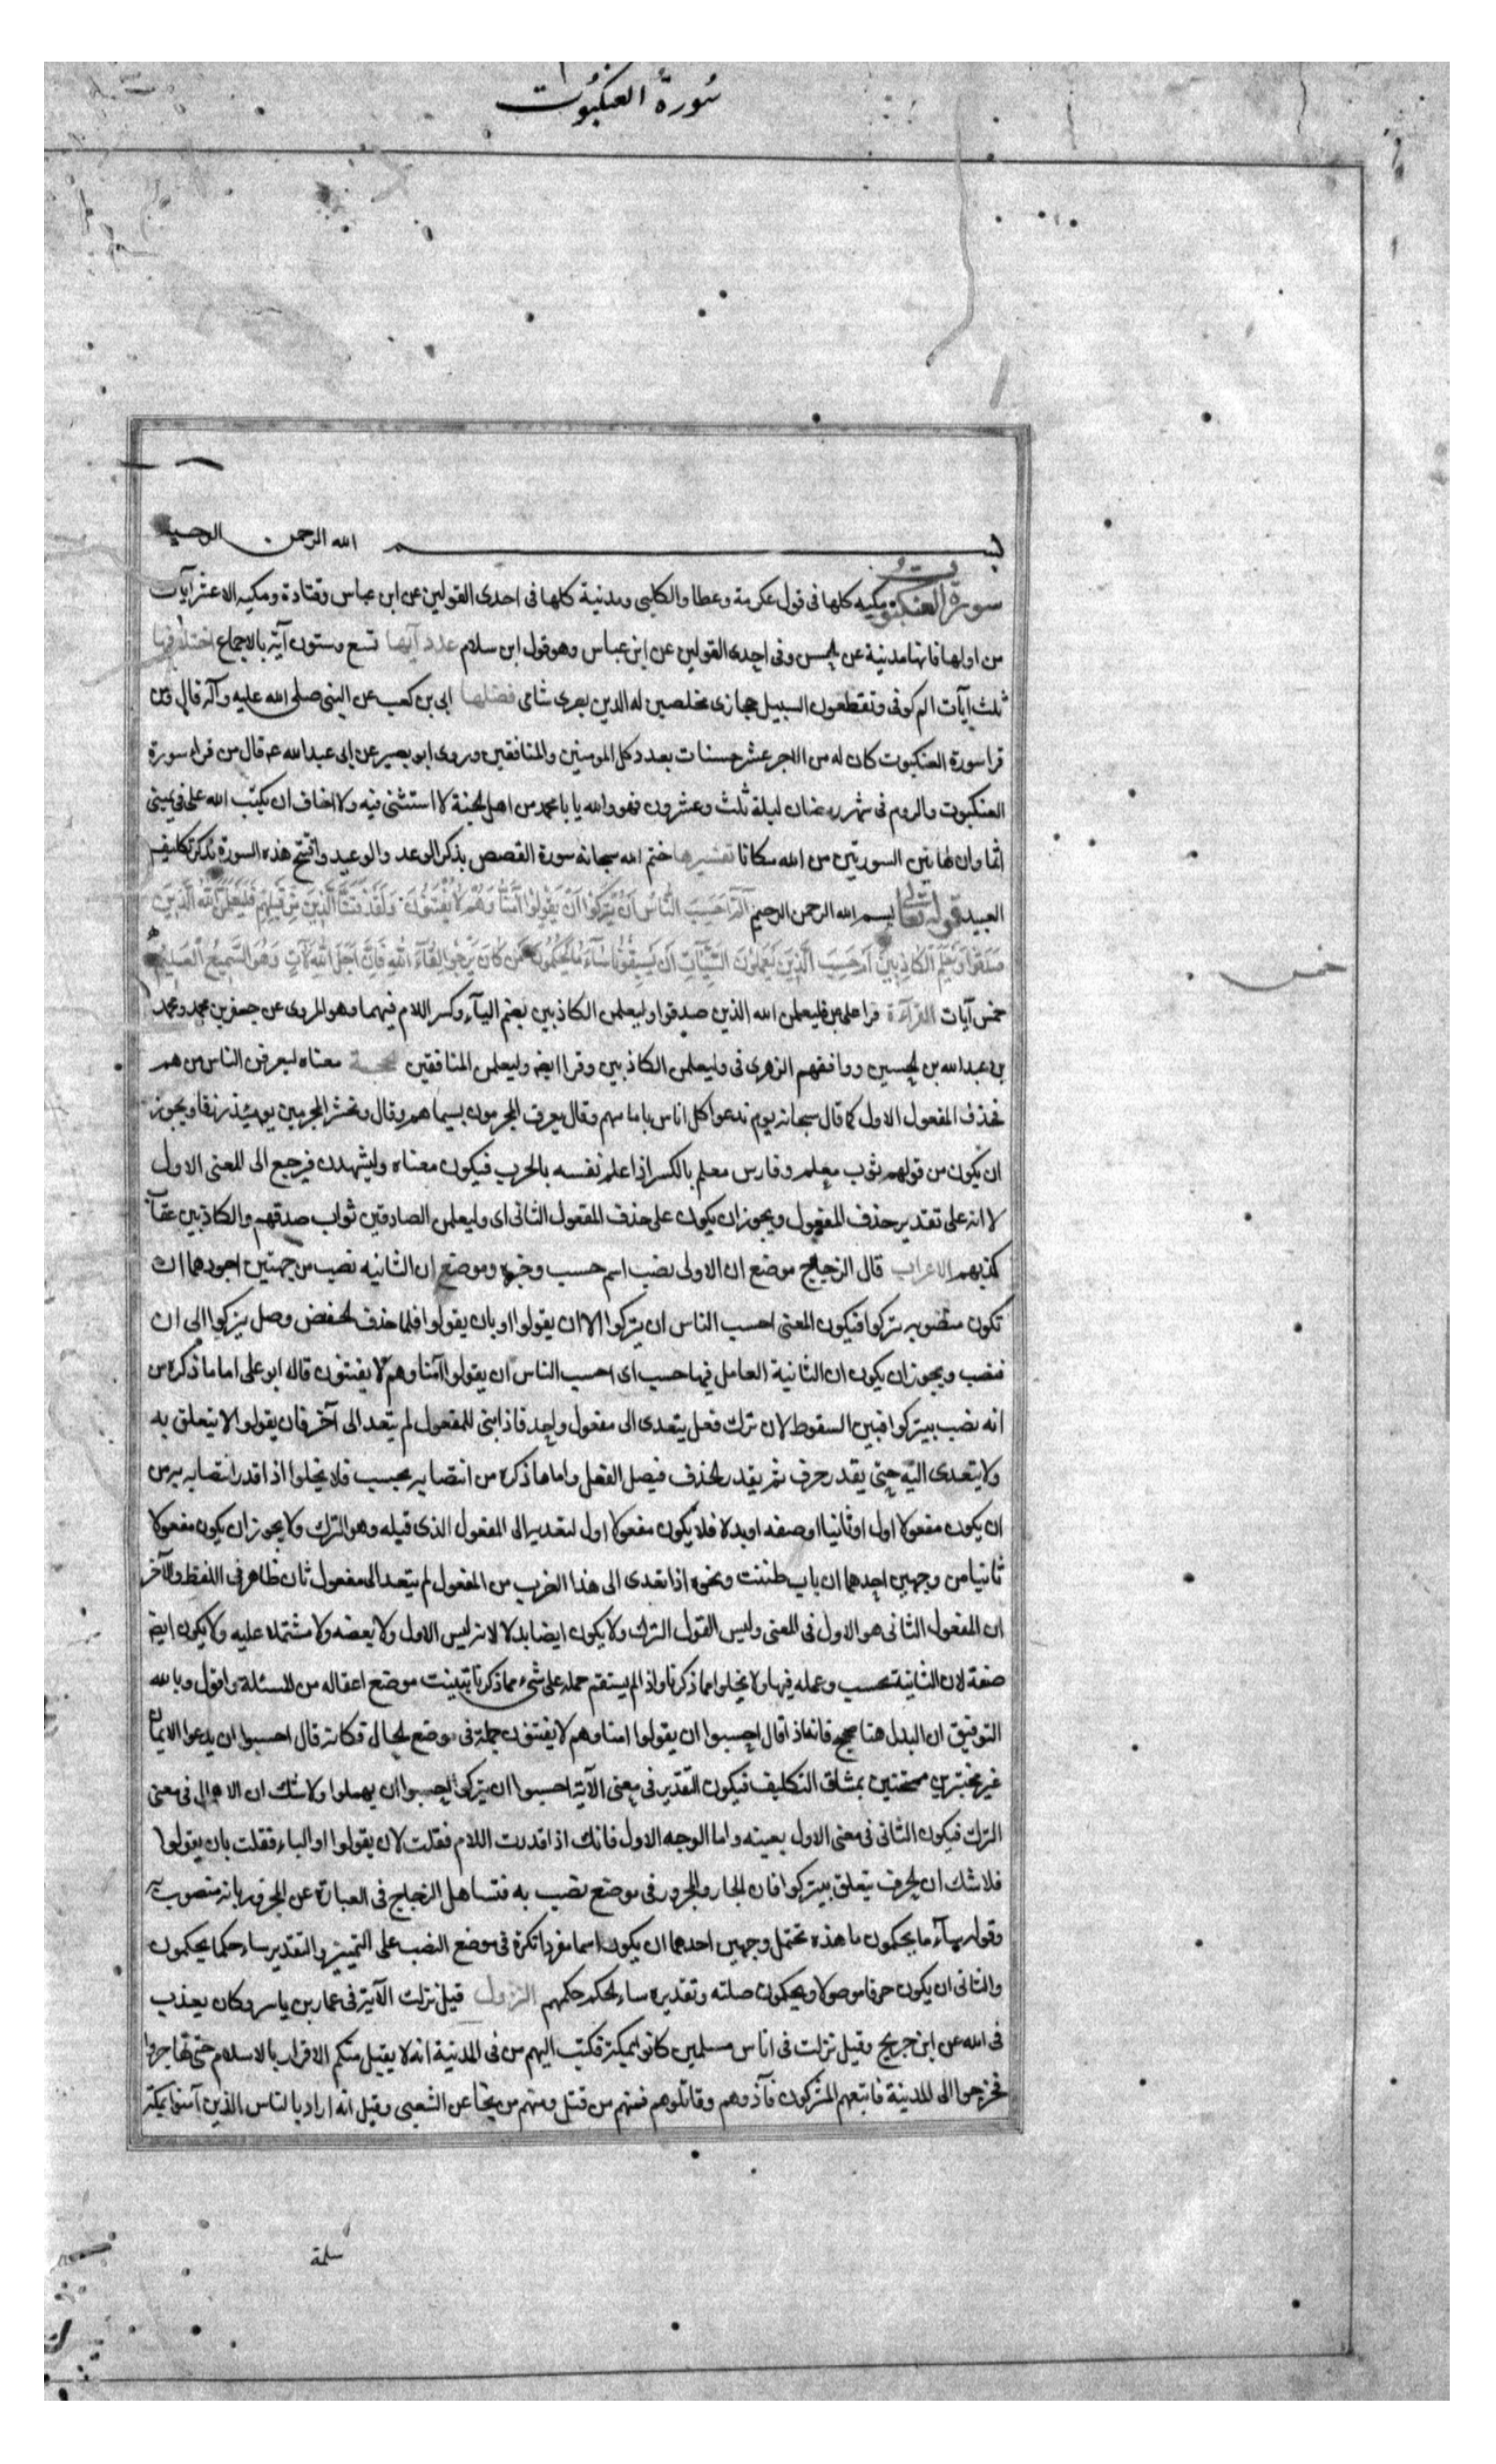 سورة العنكبوت
بسم الله الرحمن الرحيم
سورة العنكبوت مكيه كلها فى قول عكرمة وعطا والكلبى ومدنية كلها فى احدى القولين عن ابن عباس وقتادة ومكيه الا عشر آيات
من اولها فانها مدنية عن الحسن وفى احدى القولين عن ابن عباس وهو قول ابن سلام عدد آيها تسع وستون آية بالاجماع اختلافها
ثلث آيات الم كوفى وتقطعون السبيل حجازى مخلصين له الدين بصرى شامى فضلها ابى بن كعب عن النبى صلى الله عليه وآله قال ومن
قرا سورة العنكبوت كان له من الاجر عشر حسنات بعدد كل المومنين والمنافقين وروى ابو بصير عن ابى عبدالله عم قال من قراء سورة
العنكبوت والروم فى شهر رمضان ليلة ثلث وعشرون فهو والله يا با محمد من اهل الجنة لا استثنى فيه ولا اخاف ان يكتب الله على فى يمينى
اثما وان لهاتين السورتين من الله مكانا تفسيرها ختم الله سبحانه سورة القصص بذكر الوعد والوعيد وافتتح هذه السورة بذكر تكليف
العبيد قوله تعالى بسم الله الرحمن الرحيم الٓمٓ اَحَسِبَ النَّاسُ اَنْ يُتْرَكُوا اَنْ يَقُولُوا آمَنَّا وَهُمْ لَا يُفْتَنُونَ وَلَقَدْ فَتَنَّا الَّذِينَ مِنْ قَبْلِهِمْ فَلَيَعْلَمَنَّ اللهُ الَّذِينَ
صَدَقُوا وَلَيَعْلَمَنَّ الْكَاذِبِينَ اَمْ حَسِبَ الَّذِينَ يَعْمَلُونَ السَّيِّئَاتِ اَنْ يَسْبِقُونَا سَآءَ مَا يَحْكُمُونَ مَنْ كَانَ يَرْجُوا لِقَآءَ اللهِ فَاِنَّ اَجَلَ اللهِ لَآتٍ وَهُوَ السَّمِيعُ الْعَلِيمُ
خمس
خمس آيات القراءة قرا على عم فليعلمن الله الذين صدقوا وليعلمن الكاذبين بضم اليآء وكسر اللام فيهما وهو المروى عن جعفر بن محمد ومحمد
بن عبد الله بن الحسين ووافقهم الزهرى فى وليعلمن الكاذبين وقرا ايضا وليعلمن المنافقين الحجة معناه ليعرفن الناس من هم
فحذف المفعول الاول كما قال سبحانه يوم ندعوا كل اناس بامامهم وقال يعرف المجرمون بسيماهم وقال ونحشر المجرمين يومئذ زرقا ويجوز
ان يكون من قولهم ثوب معلم وفارس معلم بالكسر اذا علم نفسه بالحرب فيكون معناه وليشهدن فيرجع الى المعنى الاول
لانه على تقدير حذف المفعول ويجوز ان يكون على حذف المفعول الثانى اى وليعلمن الصادقين ثواب صدقهم والكاذبين عقاب
كذبهم الاعراب قال الزجاج موضع ان الاولى نصب اسم حسب وخبره وموضع ان الثانيه نصب من جهتين اجودهما ان
تكون منصوبه بيتركوا فيكون المعنى احسب الناس ان يتركوا الا ان يقولوا او بان يقولوا فلما حذف الخفض وصل يتركوا الى ان
فنصب ويجوز ان يكون ان الثانية العامل فيها حسب اى احسب الناس ان يقولوا آمنا وهم لا يفتنون قاله ابو على اما ما ذكره من
انه نصب بيتركوا فبين السقوط لان ترك فعل يتعدى الى مفعول واحد فاذا بنى للمفعول لم يتعد الى آخر فان يقولوا لا يتعلق به
ولا يتعدى اليه حتى يقدر حرف ثم يقدر لحذف فيصل الفعل واما ما ذكره من انتصابه بحسب فلا يخلوا اذا قدر انتصابه به من
ان يكون مفعولا اول او ثانيا او صفه او بدلا فلا يكون مفعولا اول لتعديه الى المفعول الذى قبله وهو الترك ولا يجوز ان يكون مفعولا
ثانيا من وجهين احدهما ان باب ظننت ونحوه اذا تعدى الى هذا الضرب من المفعول لم يتعد الى مفعول ثان ظاهر فى اللفظ والآخر
ان المفعول الثانى هو الاول فى المعنى وليس القول الترك ولا يكون ايضا بدلا لانه ليس الاول ولا بعضه ولا مشتملا عليه ولا يكون ايضا
صفة لان الثانية بحسب وعمله فيها ولا يخلوا مما ذكرنا واذا لم يستقم حمله على شىء مما ذكرنا تبينت موضع اغفاله من المسئلة واقول وبالله
التوفيق ان البدل هنا صحيح فانه اذا قال احسبوا ان يقولوا امنا وهم لا يفتنون جملة فى موضع الحال فكانه قال احسبوا ان يدعوا الايمان
غير مختبرين ممتحنين بمشاق التكليف فيكون التقدير فى معنى الآية احسبوا ان يتركوا احسبوا ان يهملوا ولا شك ان الاهمال فى معنى
الترك فيكون الثانى فى معنى الاول بعينه واما الوجه الاول فانك اذا قدرت اللام فقلت لان يقولوا او الباء فقلت بان يقولوا
فلا شك ان الحرف يتعلق بيتركوا فان الجار والمجرور فى موضع نصب به فتساهل الزجاج فى العبارة عن المجرور بانه منصوب به
وقوله سآء ما يحكمون ما هذه تحتمل وجهين احدهما ان يكون اسما مفردا نكرة فى موضع النصب على التمييز والتقدير ساء حكما يحكمون
والثانى ان يكون حرفا موصولا ويحكمون صلته وتقديره ساء الحكم حكمهم النزول قيل نزلت الآية فى عمار بن ياسر وكان يعذب
فى الله عن ابن جريج وقيل نزلت فى اناس مسلمين كانوا بمكة فكتب اليهم من فى المدينة انه لا يقبل منكم الاقرار بالاسلام حتى تهاجروا
فخرجوا الى المدينة فاتبعهم المشركون فآذوهم وقاتلوهم فمنهم من قتل ومنهم من نجا عن الشعبى وقيل انه اراد بالناس الذين آمنوا بمكة
سلمة